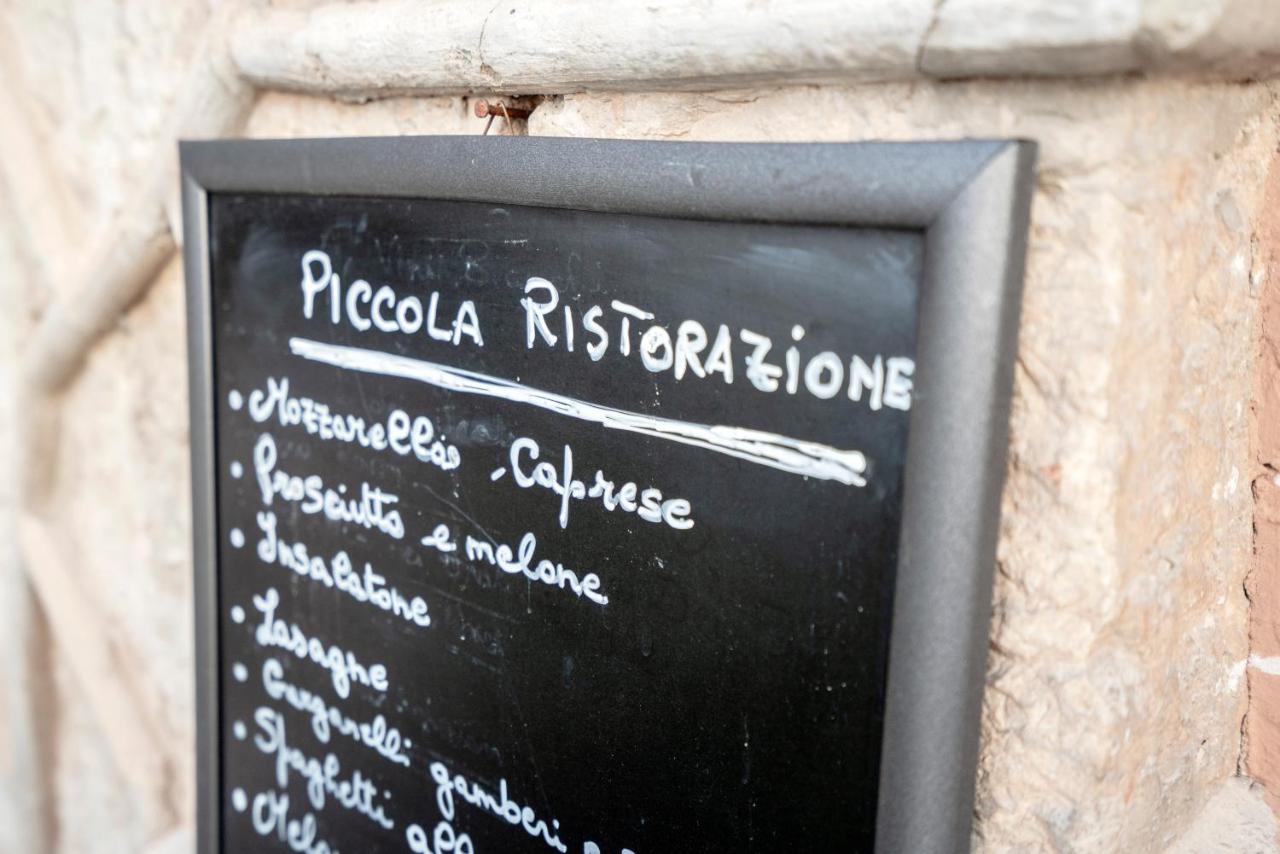 PICCOLA RISTORAZIONE
• Mozzarella, Caprese
• Prosciutto e melone
• Insalatone
• Lasagne
• Garganelli gamberi
• Spaghetti